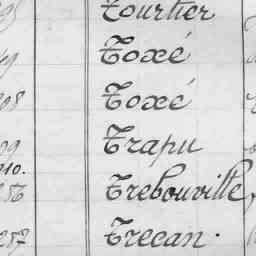 Tourtier
Toxé
Toxé
Trapu
210.
256 Trebouville,
257 Trecan.